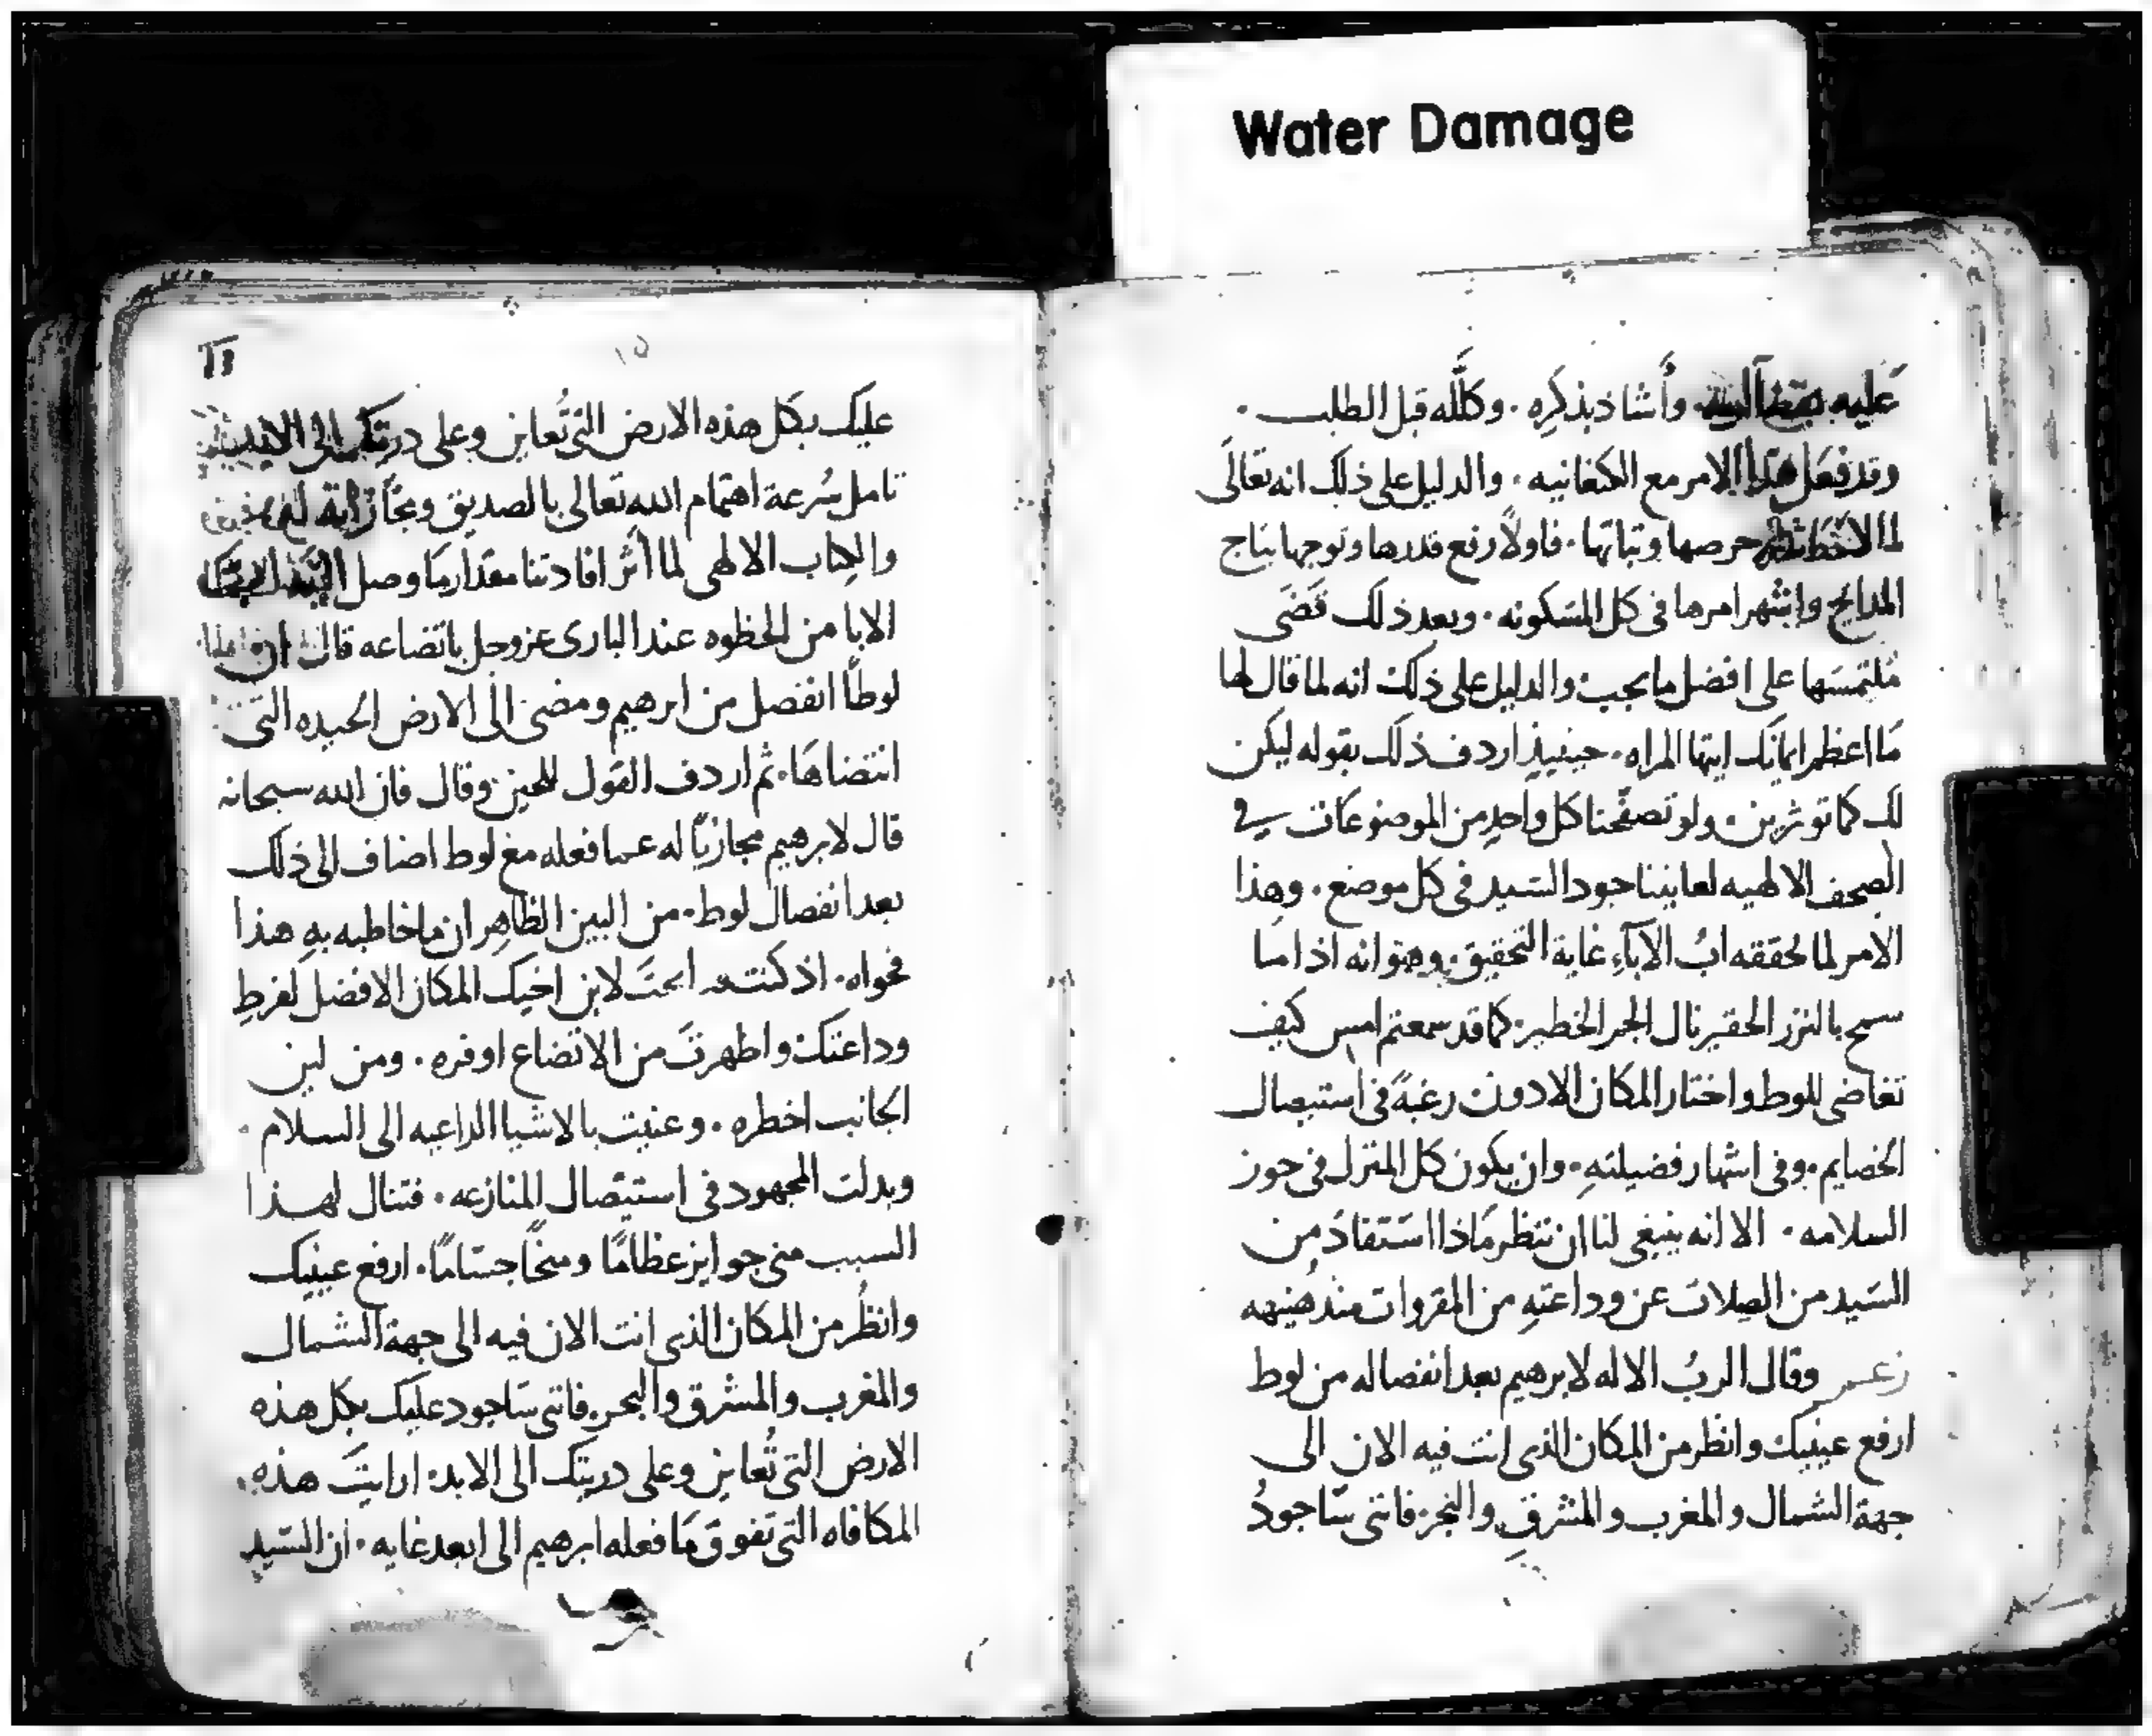 Water Damage
عليه وأشاد بذكره . وكلله قبل الطلب .
وقد فعل هذا الامر مع الكنعانيه . والدليل على ذلك انه تعالى
لما لاحظ حرصها وثباتها . فاولاً رفع قدرها وتوجها بتاج
المدايح واشهر امرها فى كل المسكونه . وبعد ذلك قضى
ملتمسها على افضل ما يجب والدليل على ذلك انه لما قال لها
ما اعظم ايمانك ايتها المراه . حينيذٍ اردف ذلك بقوله ليكن
لك كما توثرين . ولو تصفحنا كل واحدٍ من الموضوعات في
الصحف الالهيه لعاينا جود السيد فى كل موضع . وهذا
الامر لما تحققه ابُ الآباءِ غاية التحقيق . وهو انه اذا ما
سمح بالنزر الحقير نال الجم الخطير . كما قد سمعتم امس كيف
تغاضى للوط واختار المكان الادون رغبةً فى استيصال
الخصايم . وفى اشهار فضيلتهِ . وان يكون كل المنزل فى حوز
السلامه . الا انه ينبغى لنا ان ننظر ماذا استفادَ من
السيد من الصِلات عن وداعتهِ من المقروات منذ هُنيهه
زعم وقال الربُ الاله لابرهيم بعد انفصاله من لوط
ارفع عينيك وانظر من المكان الذى انت فيه الان الى
جهة الشمال والمغرب والمشرقِ والبحر . فاننى ساجودُ
١٥
عليك بكل هذه الارض التى تُعاين وعلى دريتك الى الابد
تامل سُرعة اهتمام الله تعالى بالصديق ومجازاته
والكتاب الالهى لما اثر افادتنا مقدار ما وصل
الابا من الحظوه عند البارى عز وجل باتضاعه قال ان
لوطاً انفصل من ابرهيم ومضى الى الارض الجيده التى
انتضاها . ثم اردف القول للحين وقال فان الله سبحانه
قال لابرهيم مجازياً له عما فعله مع لوط اضاف الى ذلك
بعد انفصال لوط . من البين الظاهِر ان ما خاطبه بهِ هذا
فحواه . اذ كنت قد ابحتَ لابن اخيك المكان الافضل لفرطِ
وداعتك واظهرتَ من الاتضاع اوفره . ومن لين
الجانب اخطره . وعنيت بالاشيا الداعيه الى السلام .
وبدلت المجهود فى استيصال المنازعه . فتنال لهذا
السبب منى جوايز عظامًا ومنحًا جسامًا . ارفع عينيك
وانظُر من المكان الذى انت الان فيه الى جهة الشمال
والمغرب والمشرق والبحر . فاننى ساجود عليك بكل هذه
الارض التى تُعاين وعلى دريتك الى الابد . ارايتَ هذه
المكافاه التى تفوق ما فعله ابرهيم الى ابعد غايه . ان السيد